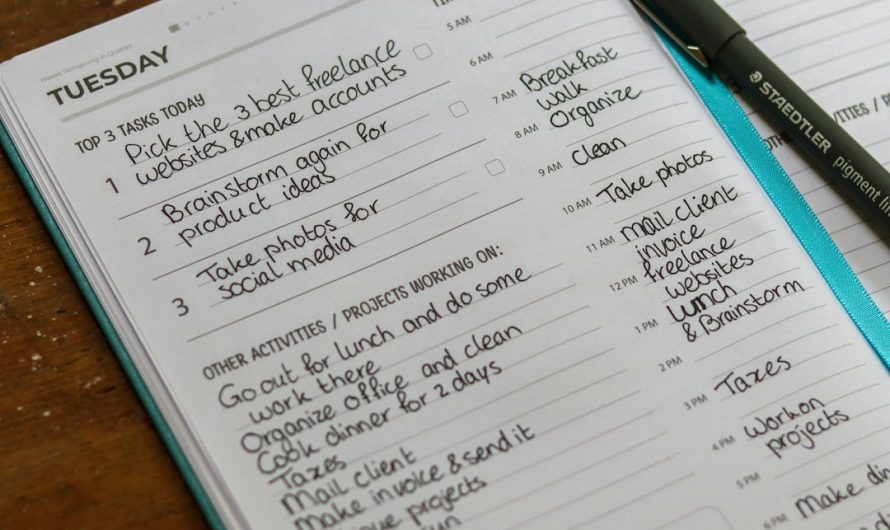 Weeks Remaining in Quarter
TUESDAY
TOP 3 TASKS TODAY
1
Pick the 3 best freelance
websites & make accounts
2
Brainstorm again for
product ideas
3
Take photos for
social media
OTHER ACTIVITIES / PROJECTS WORKING ON:
Go out for lunch and do some
work there
Organize office and clean
Cook dinner for 2 days
Taxes
Mail client
make invoice & send it
projects
5 AM
6 AM
7 AM Breakfast
walk
8 AM Organize
9 AM clean
10 AM Take photos
11 AM mail client
invoice
12 PM freelance
websites
1 PM lunch
& Brainstorm
2 PM
3 PM Taxes
4 PM work on
projects
5 PM
PM make
ACTIVITIES / PRO
STAEDTLER
pigment